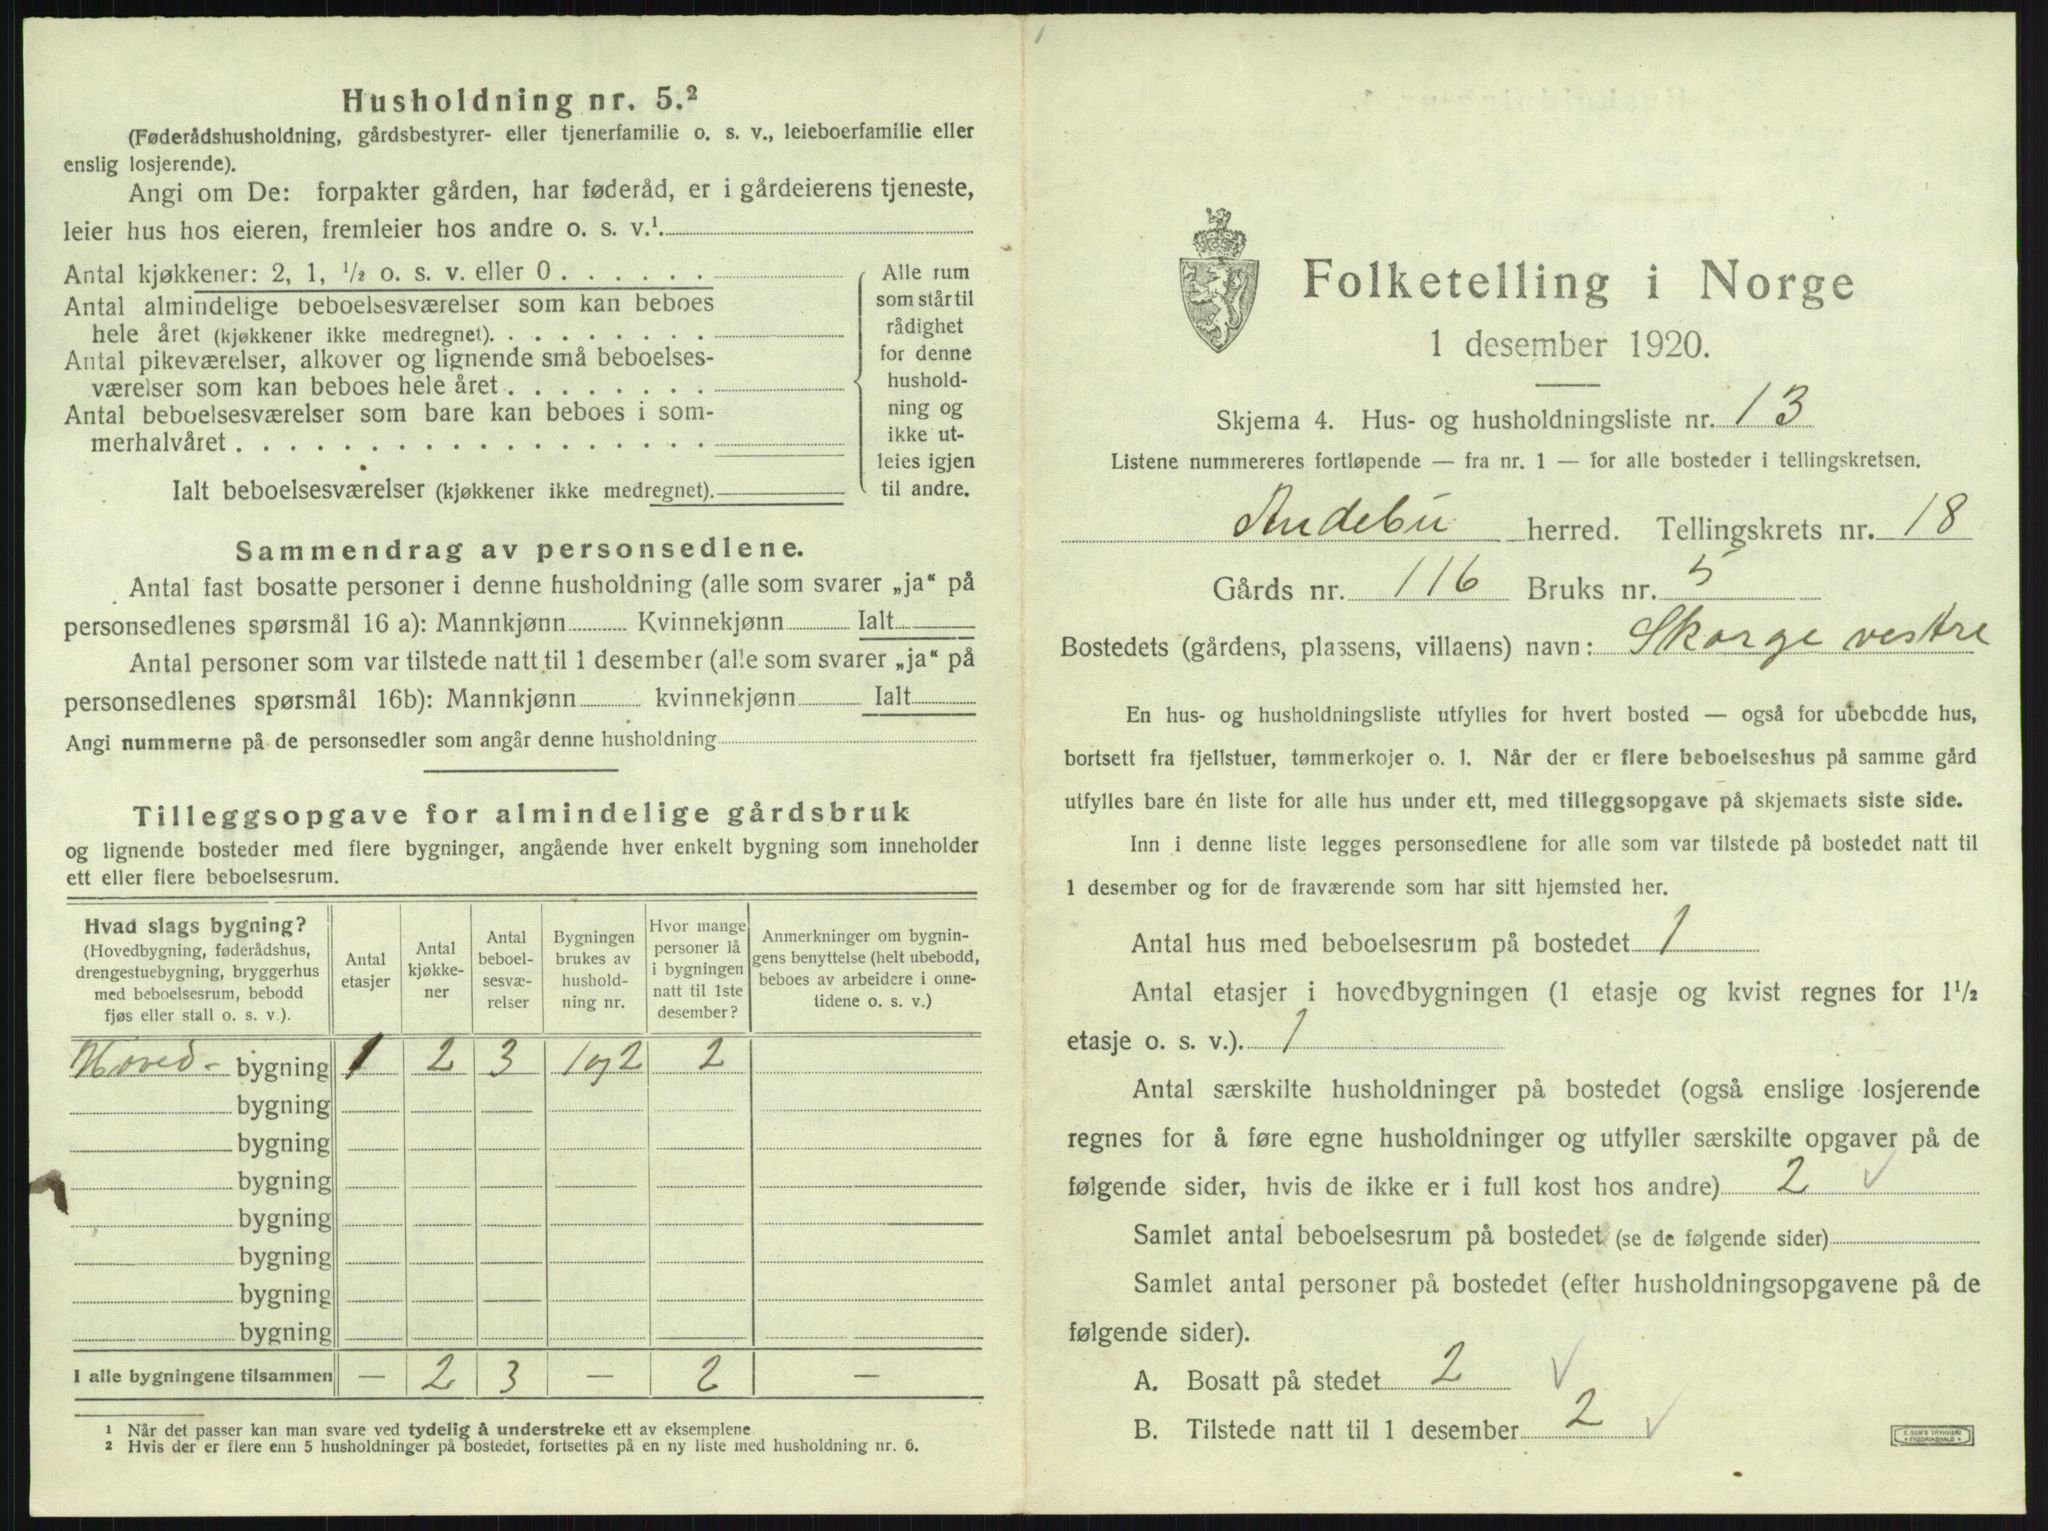 Husholdning nr. 5.²
(Føderådshusholdning, gårdsbestyrer- eller tjenerfamilie o. s. v., leieboerfamilie eller
enslig losjerende).
Angi om De: forpakter gården, har føderåd, er i gårdeierens tjeneste,
leier hus hos eieren, fremleier hos andre o. s. v.¹
Antal kjøkkener: 2, 1, ½ o. s. v. eller 0 . . . . . .
Antal almindelige beboelsesværelser som kan beboes
hele året (kjøkkener ikke medregnet). . . . . . . . .
Antal pikeværelser, alkover og lignende små beboelses-
værelser som kan beboes hele året . . . . . . . .
Antal beboelsesværelser som bare kan beboes i som-
merhalvåret . . . . . . . . . . . . . . . . . .
Ialt beboelsesværelser (kjøkkener ikke medregnet).
Alle rum
som står til
rådighet
for denne
hushold-
ning og
ikke ut-
leies igjen
til andre.
Sammendrag av personsedlene.
Antal fast bosatte personer i denne husholdning (alle som svarer „ja“ på
personsedlenes spørsmål 16 a): Mannkjønn Kvinnekjønn Ialt
Antal personer som var tilstede natt til 1 desember (alle som svarer „ja“ på
personsedlenes spørsmål 16b): Mannkjønn kvinnekjønn Ialt
Angi nummerne på de personsedler som angår denne husholdning
Tilleggsopgave for almindelige gårdsbruk
og lignende bosteder med flere bygninger, angående hver enkelt bygning som inneholder
ett eller flere beboelsesrum.
Hvad slags bygning?
(Hovedbygning, føderådshus,
drengestuebygning, bryggerhus
med beboelsesrum, bebodd
fjøs eller stall o. s. v.).
Antal
etasjer
Antal
kjøkke-
ner
Antal
beboel-
sesvæ-
relser
Bygningen
brukes av
hushold-
ning nr.
Hvor mange
personer lå
i bygningen
natt til 1ste
desember?
Anmerkninger om bygnin-
gens benyttelse (helt ubebodd,
beboes av arbeidere i onne-
tidene o. s. v.)
Hoved- bygning 1 2 3 1 og 2 2
bygning
bygning
bygning
bygning
bygning
bygning
bygning
I alle bygningene tilsammen — 2 3 — 2 —
¹ Når det passer kan man svare ved tydelig å understreke ett av eksemplene.
² Hvis der er flere enn 5 husholdninger på bostedet, fortsettes på en ny liste med husholdning nr. 6.
Folketelling i Norge
1 desember 1920.
Skjema 4. Hus- og husholdningsliste nr. 13
Listene nummereres fortløpende — fra nr. 1 — for alle bosteder i tellingskretsen.
Andebu herred. Tellingskrets nr. 18
Gårds nr. 116 Bruks nr. 5
Bostedets (gårdens, plassens, villaens) navn: Skorge vestre
En hus- og husholdningsliste utfylles for hvert bosted — også for ubebodde hus,
bortsett fra fjellstuer, tømmerkojer o. l. Når der er flere beboelseshus på samme gård
utfylles bare én liste for alle hus under ett, med tilleggsopgave på skjemaets siste side.
Inn i denne liste legges personsedlene for alle som var tilstede på bostedet natt til
1 desember og for de fraværende som har sitt hjemsted her.
Antal hus med beboelsesrum på bostedet 1
Antal etasjer i hovedbygningen (1 etasje og kvist regnes for 1½
etasje o. s. v.). 1
Antal særskilte husholdninger på bostedet (også enslige losjerende
regnes for å føre egne husholdninger og utfyller særskilte opgaver på de
følgende sider, hvis de ikke er i full kost hos andre) 2 ✓
Samlet antal beboelsesrum på bostedet (se de følgende sider)
Samlet antal personer på bostedet (efter husholdningsopgavene på de
følgende sider).
A. Bosatt på stedet 2 ✓
B. Tilstede natt til 1 desember 2 ✓